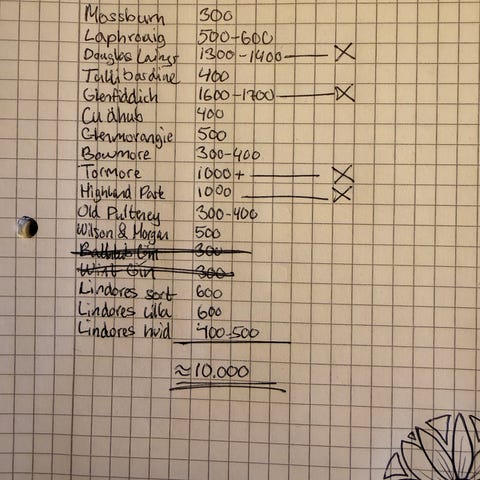 Mossburn 300
Laphroaig 500-600
Douglas Laings 1300-1400 X
Tullibardine 400
Glenfiddich 1600-1700 X
Cu dhub 400
Glenmorangie 500
Bowmore 300-400
Tormore 1000+ X
Highland Park 1000 X
Old Pulteney 300-400
Wilson & Morgan 500
Bathtub Gin 300
Wint Gin 300
Lindores sort 600
Lindores lilla 600
Lindores hvid 400-500
≈10.000